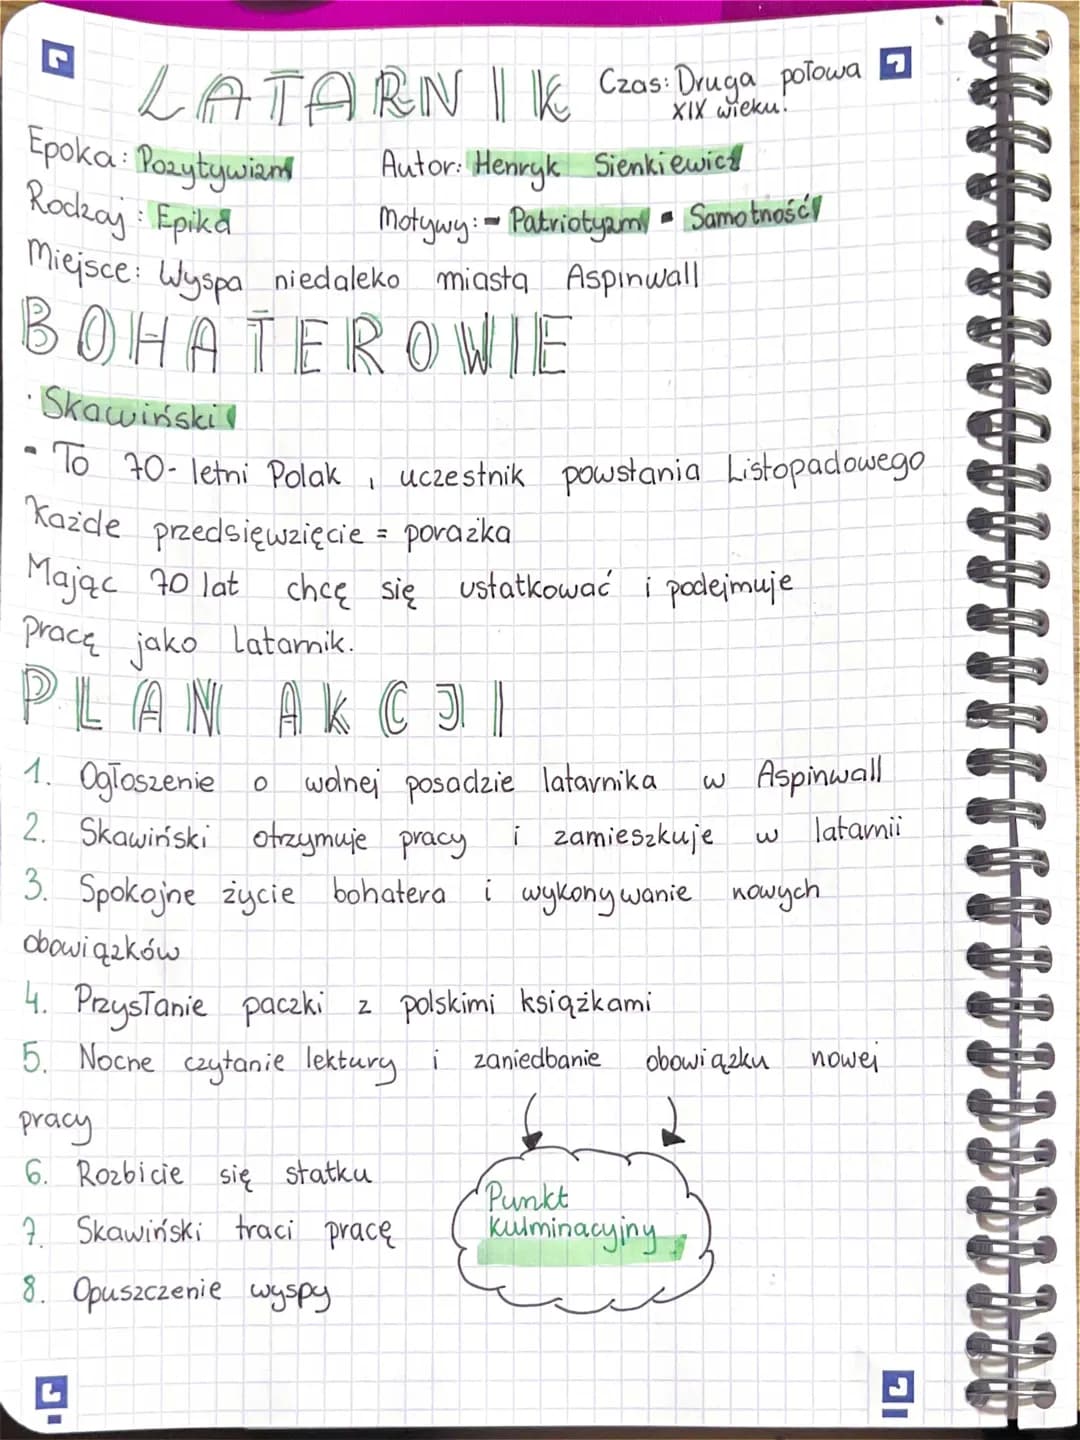 LATARNIK Czas: Druga połowa
XIX wieku.
Epoka: Pozytywizm Autor: Henryk Sienkiewicz
Rodzaj: Epika Motywy: - Patriotyzm - Samotność
Miejsce: Wyspa niedaleko miasta Aspinwall
BOHATEROWIE
· Skawiński
- To 70-letni Polak, uczestnik powstania Listopadowego
Każde przedsięwzięcie = porażka
Mając 70 lat chcę się ustatkować i podejmuje
pracę jako Latarnik.
PLAN AKCJI
1. Ogłoszenie o wolnej posadzie latarnika w Aspinwall
2. Skawiński otrzymuje pracy i zamieszkuje w latarnii
3. Spokojne życie bohatera i wykonywanie nowych
obowiązków
4. Przysłanie paczki z polskimi książkami
5. Nocne czytanie lektury i zaniedbanie obowiązku nowej
pracy
6. Rozbicie się statku
Punkt
7. Skawiński traci pracę
kulminacyjny
8. Opuszczenie wyspy